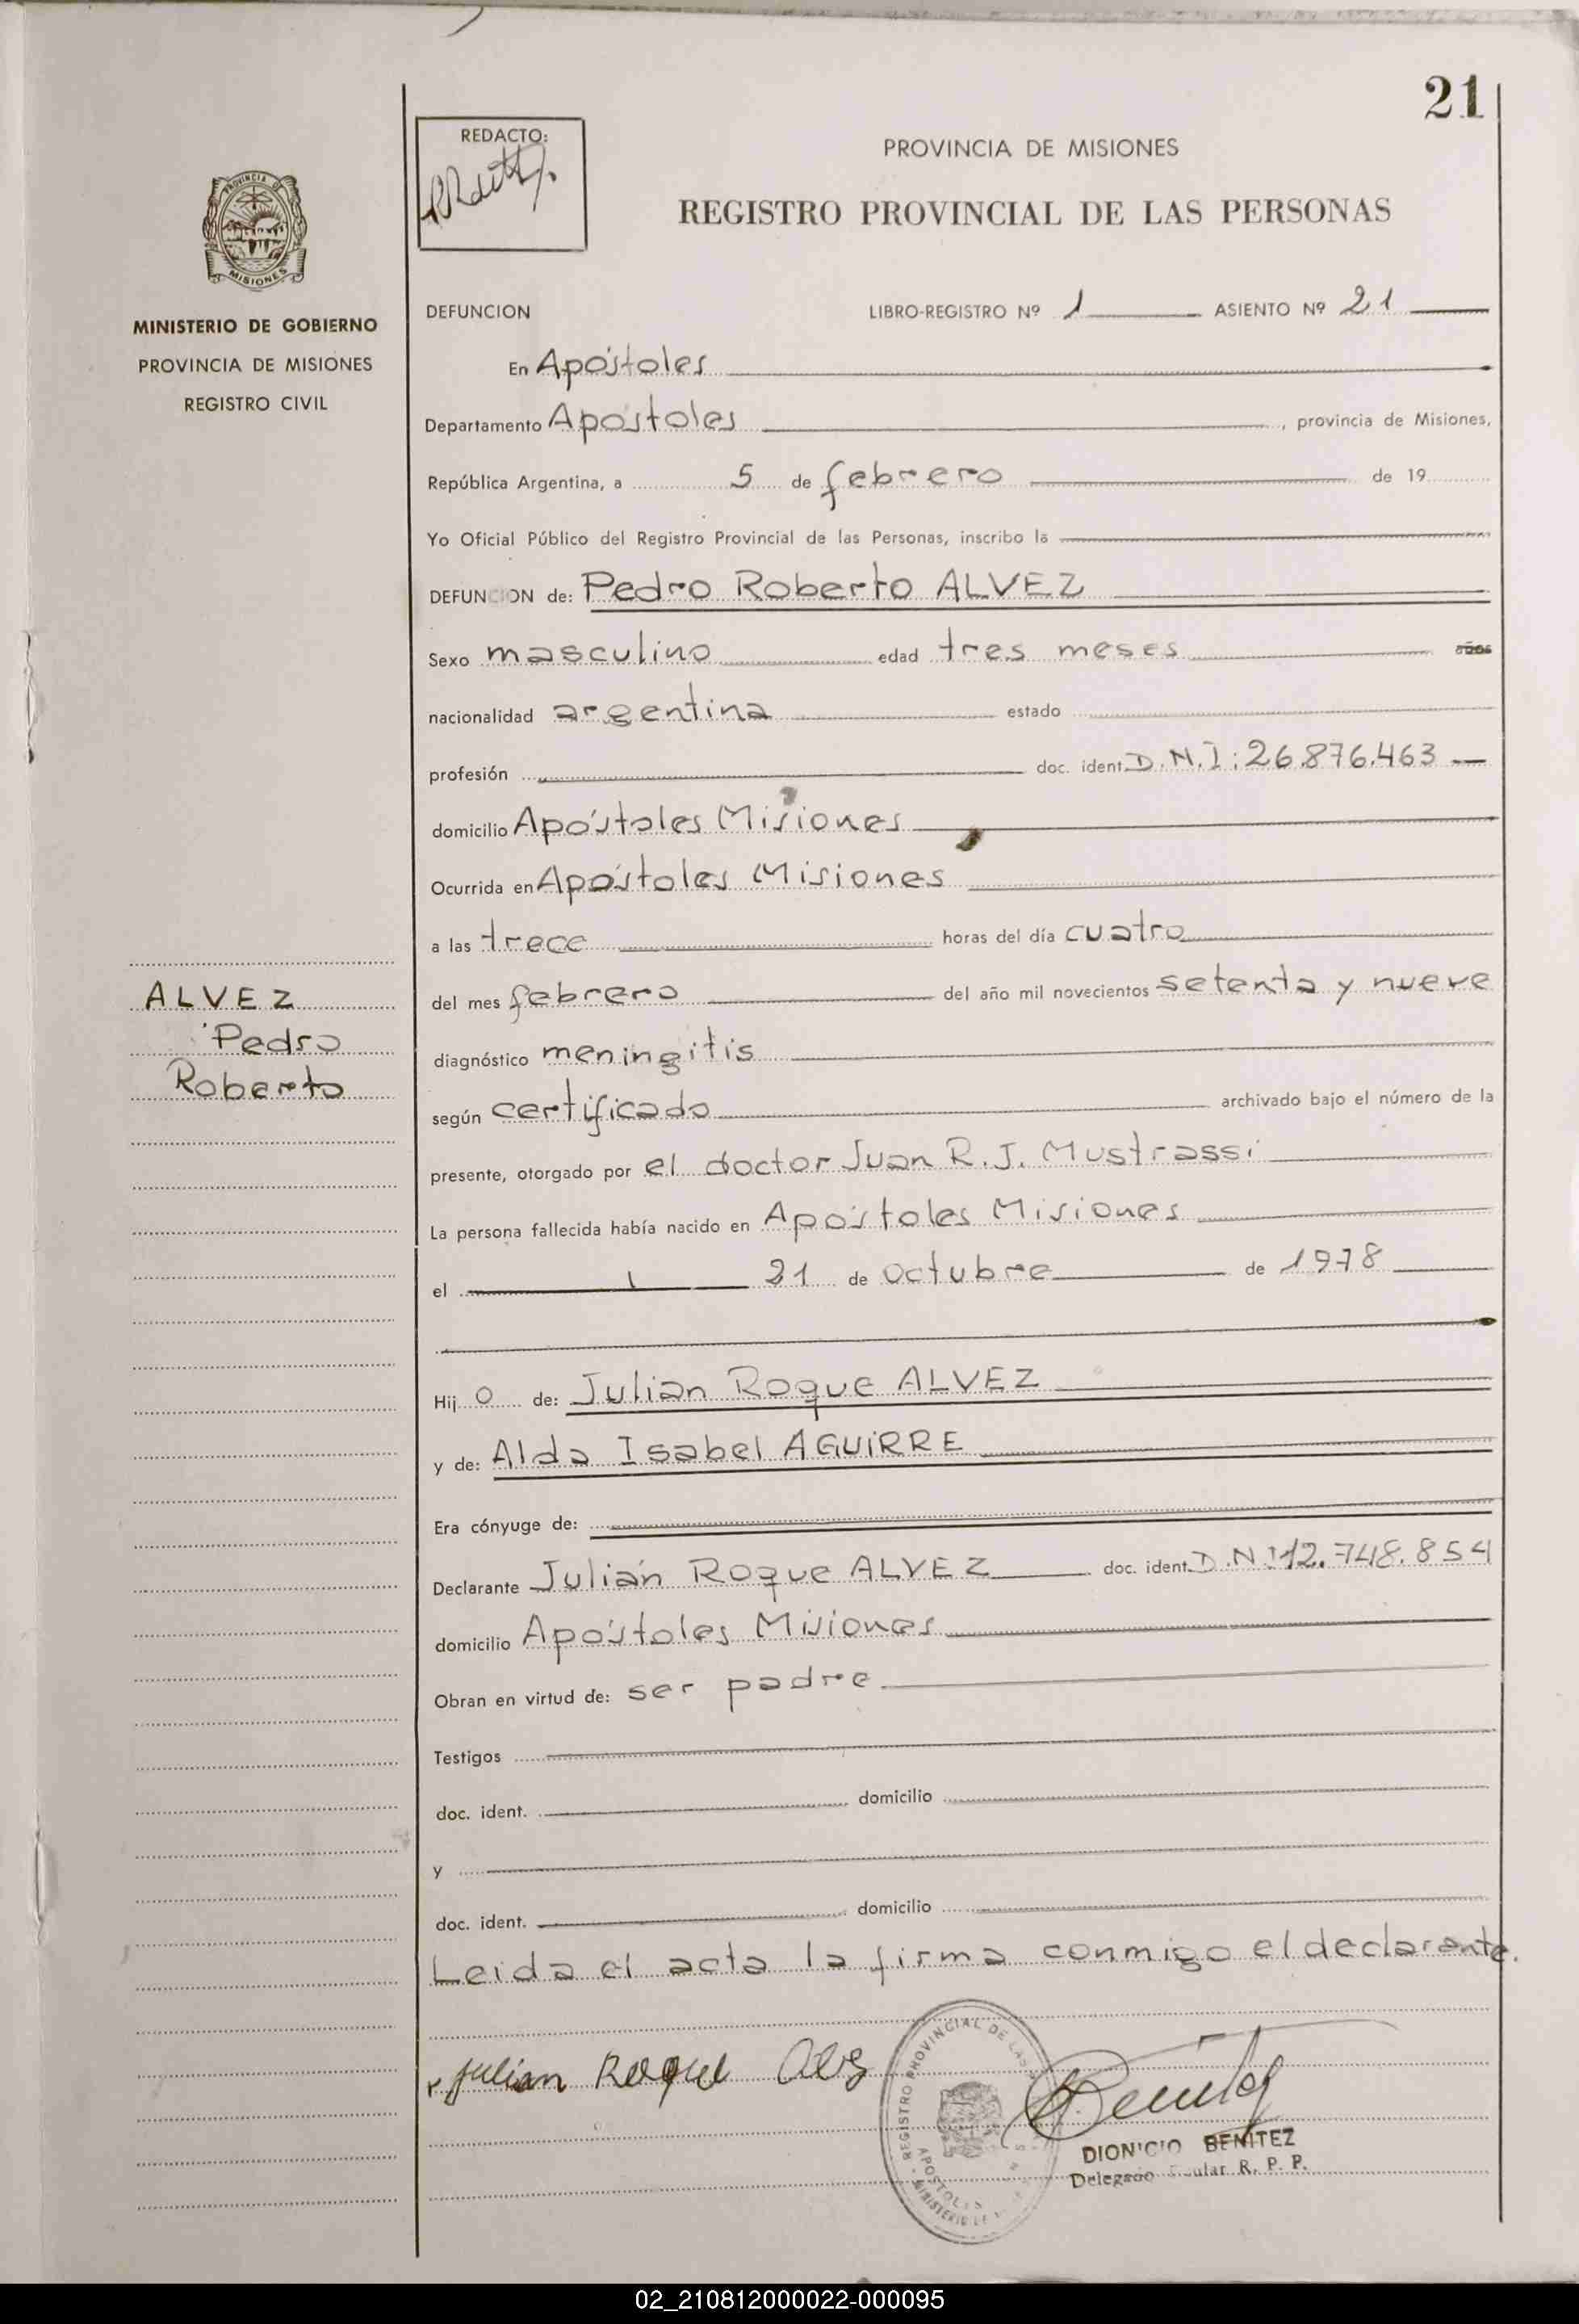 21
PROVINCIA DE MISIONES
REGISTRO PROVINCIAL DE LAS PERSONAS
REDACTO:
PROVINCIA DE
MISIONES
MINISTERIO DE GOBIERNO
PROVINCIA DE MISIONES
REGISTRO CIVIL
DEFUNCION LIBRO-REGISTRO Nº 1 ASIENTO Nº 21
En Apóstoles
Departamento Apostoles, provincia de Misiones,
República Argentina, a 5 de febrero de 19
Yo Oficial Público del Registro Provincial de las Personas, inscribo la
DEFUNCION de: Pedro Roberto ALVEZ
Sexo masculino edad tres meses años
nacionalidad argentina estado
profesión doc. ident. D.N.I: 26.876.463
domicilio Apóstoles Misiones
Ocurrida en Apóstoles Misiones
a las trece horas del día cuatro
del mes febrero del año mil novecientos setenta y nueve
diagnóstico meningitis
según certificado archivado bajo el número de la
presente, otorgado por el doctor Juan R. J. Mustrassi
La persona fallecida había nacido en Apóstoles Misiones
el 21 de octubre de 1978
Hij o de: Julián Roque ALVEZ
y de: Alda Isabel AGUIRRE
Era cónyuge de:
Declarante Julián Roque ALVEZ doc. ident. D.N.I 12.748.854
domicilio Apóstoles Misiones
Obran en virtud de: ser padre
Testigos
doc. ident. domicilio
y
doc. ident. domicilio
Leida el acta la firma conmigo el declarante.
ALVEZ
Pedro
Roberto
Julian Roque
REGISTRO PROVINCIAL DE LAS
APOSTOLES
MINISTERIO DE
DIONICIO BENITEZ
Delegado Titular R. P. P.
02_210812000022-000095